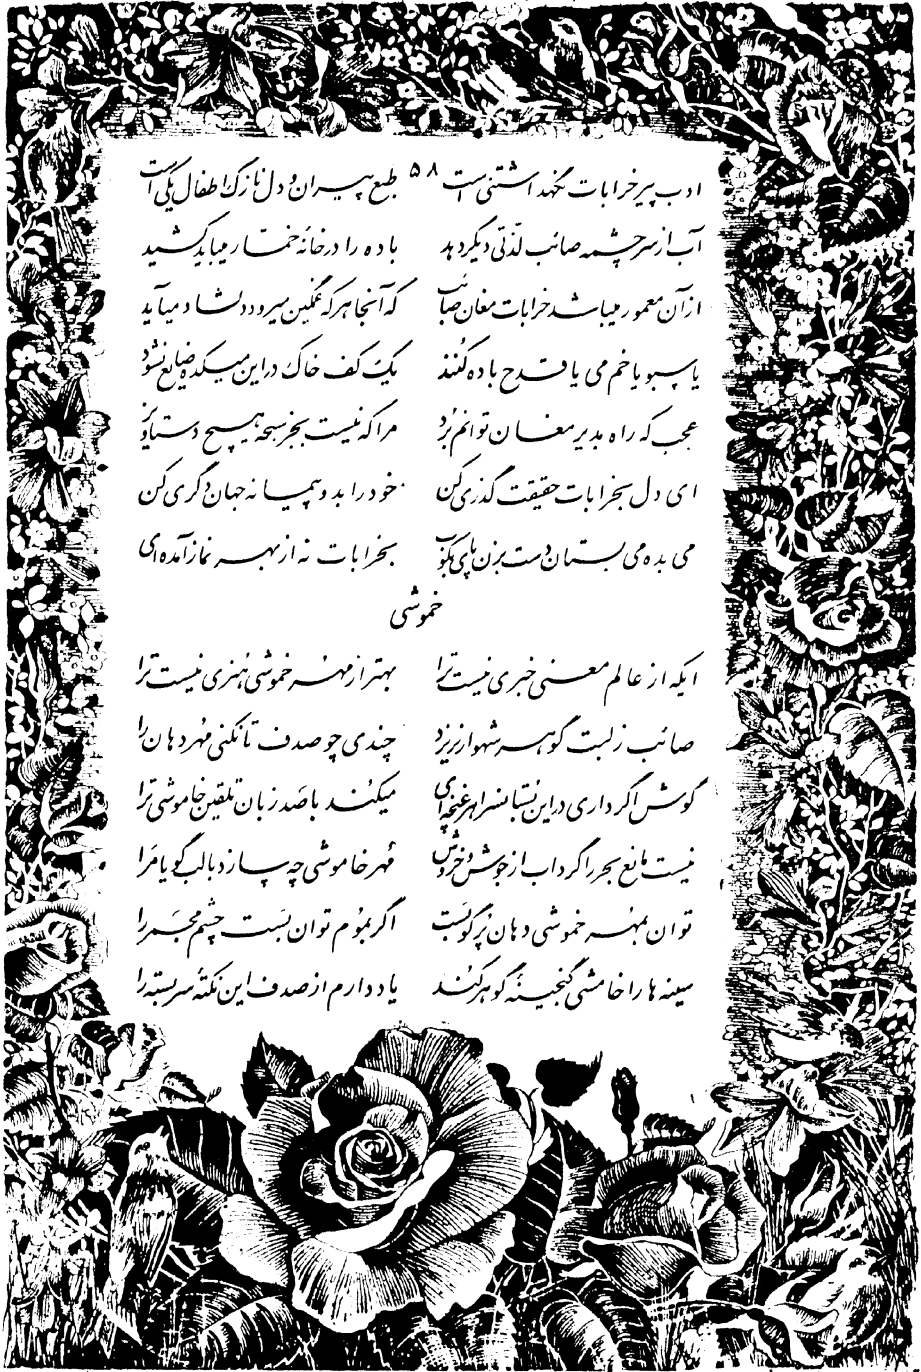 ادب پیر خرابات نگهداشتنی است ۵۸ طبع پیران و دل نازک اطفال یکی است
آب از سرچشمه صائب لذتی دیگر دهد باده را در خانه خمار میباید کشید
از آن معمور میباشد خرابات مغان صائب که آنجا هر که غمگین میرود دلشاد میآید
یا سبو یا خم می یا قدح باده کنند یک کف خاک در این میکده ضایع نشود
عجب که راه بدیر مغان توانم برد مرا که نیست بجز سبحه هیچ دستاویز
ای دل بخرابات حقیقت گذری کن خود را بدو پیمانه جهان دگری کن
می بده می بستان دست بزن پای بکوب بخرابات نه از بهر نماز آمده‌ای
خموشی
ایکه از عالم معنی خبری نیست ترا بهتر از مهر خموشی هنری نیست ترا
صائب ز لبت گوهر شهوار نریزد چندی چو صدف تا نکنی مهر دهان را
گوش اگر داری در این بستانسرا هر غنچه‌ای میکند با صد زبان تلقین خاموشی ترا
نیست مانع بحر را گرداب از جوش و خروش مهر خاموشی چه سازد با لب گویا مرا
توان بمهر خموشی دهان پرگو بست اگر بموم توان بست چشم مجمر را
سینه ها را خامشی گنجینهٔ گوهر کند یاد دارم از صدف این نکتهٔ سربسته را